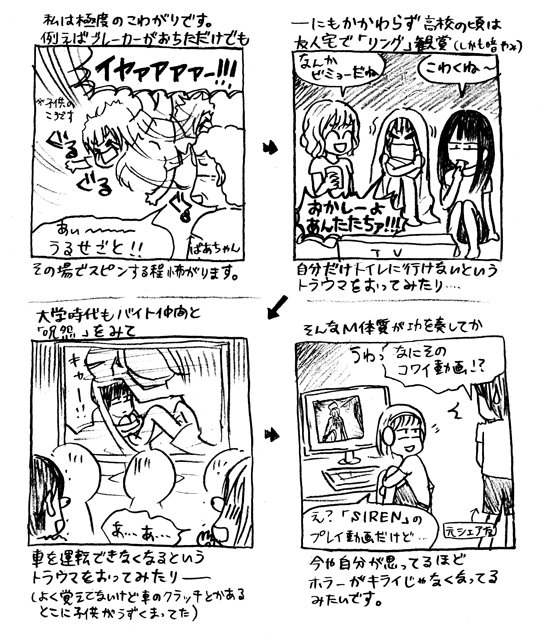 私は極度のこわがりです。
例えばブレーカーがおちただけでも
イヤァアァァー!!!
※子供の
ころです
ぐる
ぐる
ぐる
あぃ〜〜〜
うるせごと!!
ばあちゃん
その場でスピンする程怖がります。
―にもかかわらず高校の頃は
友人宅で「リング」観賞(しかも暗やみ)
なんか
ビミョーだね
こわくね〜
おかしーよ
あんたたちァ!!!
TV
自分だけトイレに行けないという
トラウマをおってみたり‥‥
大学時代もバイト仲間と
「呪怨」をみて
キャーー!!
あ…あ…
車を運転できなくなるという
トラウマをおってみたり――
(よく覚えてないけど車のクラッチとかある
とこに子供がうずくまってた)
そんなM体質が功を奏してか
うわっ なにその
コワイ動画!?
え?「SIREN」の
プレイ動画だけど…
元シェア友
今や自分が思ってるほど
ホラーがキライじゃなくなってる
みたいです。